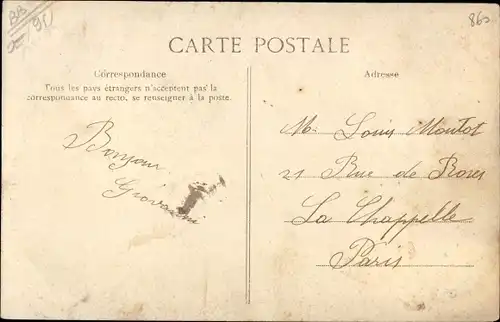 865
CARTE POSTALE
Correspondance
Tous les pays étrangers n'acceptent pas la
correspondance au recto, se renseigner à la poste.
Adresse
Bonjour
Giovanni
Mr Louis Montot
21 Rue de Roses
La Chappelle
Paris